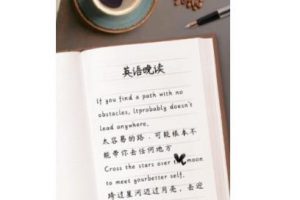 英语晚读
If you find a path with no
obstacles, itprobably doesn't
lead anywhere.
太容易的路，可能根本不
能带你去任何地方
Cross the stars over moon
to meet yourbetter self.
跨过星河迈过月亮，去迎